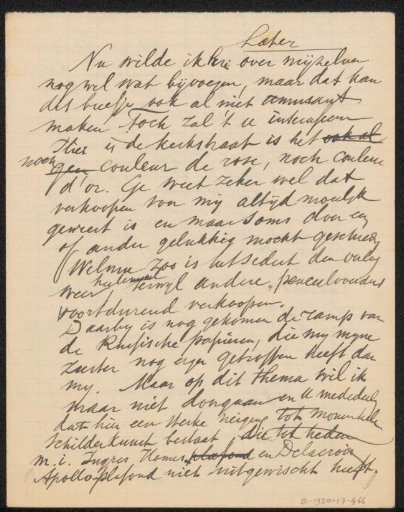 Later
Nu wilde ik hier over mijzelven
nog wel wat bijvoegen, maar dat kan
dit briefje ook al niet amusant
maken Toch zal 't U interesseeren
Hier in de kerkstraat is het ook al
noch geen couleur de rose, noch couleur
d'or. Ge weet zeker wel dat
verkoopen van my altyd moeilyk
geweest is en maar soms door een
of ander gelukkig mocht geschieden
Welnu zoo is het sedert den oorlog
weer heelemaal terwyl andere
voortdurend verkoopen.
Daarby is nog gekomen de ramp van
de Russische papieren, die my myne
zuster nog erger getroffen heeft dan
my. Maar op dit thema wil ik
maar niet doorgaan en U mededeelen
dat hier een sterke neiging tot monumentale
schilderkunst bestaat die tot heden
m.i. Ingres Homerus plafond en Delacroix
Apollo plafond niet uitgewischt heeft.
BI-1950-17-466